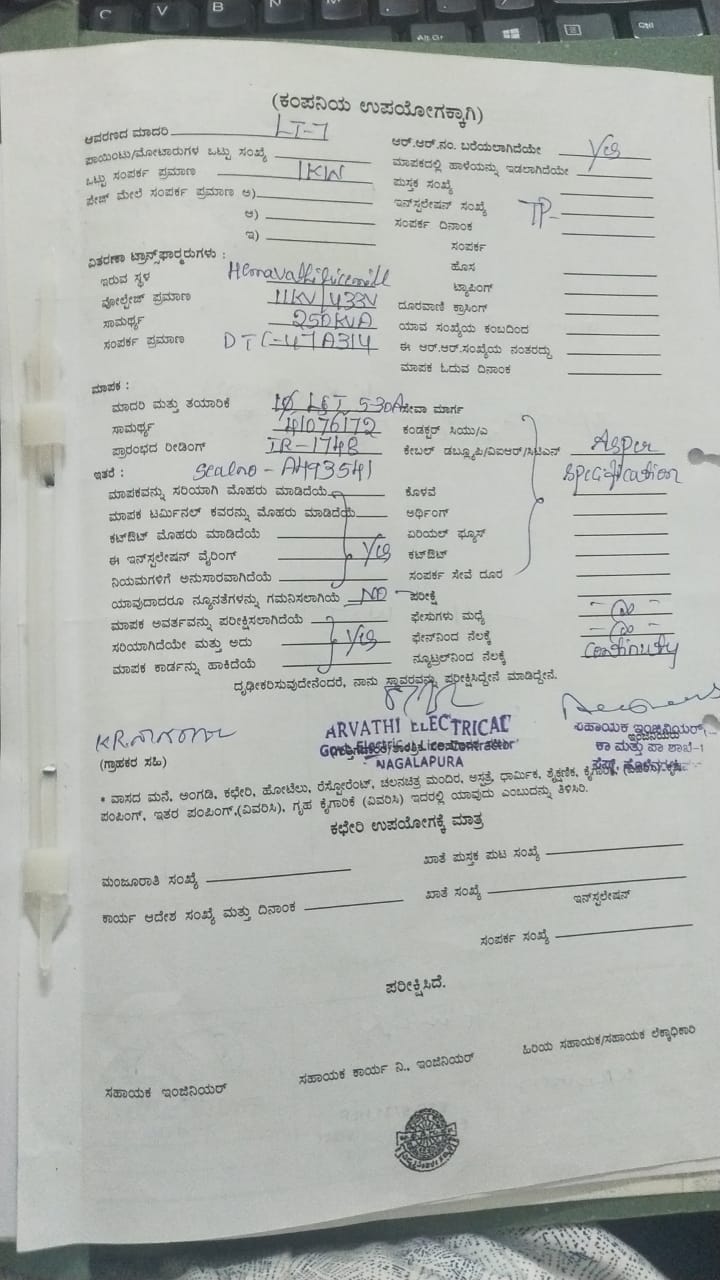 (ಕಂಪನಿಯ ಉಪಯೋಗಕ್ಕಾಗಿ)
ಆವರಣದ ಮಾದರಿ LT-7
ಪಾಯಿಂಟು/ಮೋಟಾರುಗಳ ಒಟ್ಟು ಸಂಖ್ಯೆ
ಒಟ್ಟು ಸಂಪರ್ಕ ಪ್ರಮಾಣ 1KW
ಫೇಜ್ ಮೇಲೆ ಸಂಪರ್ಕ ಪ್ರಮಾಣ ಅ)
ಆ)
ಇ)
ಆರ್.ಆರ್.ನಂ. ಬರೆಯಲಾಗಿದೆಯೇ Yes
ಮಾಪಕದಲ್ಲಿ ಹಾಳೆಯನ್ನು ಇಡಲಾಗಿದೆಯೇ
ಪುಸ್ತಕ ಸಂಖ್ಯೆ
ಇನ್‌ಸ್ಟಲೇಷನ್ ಸಂಖ್ಯೆ TP-
ಸಂಪರ್ಕ ದಿನಾಂಕ
ಸಂಪರ್ಕ
ಹೊಸ
ಟ್ಯಾಪಿಂಗ್
ದೂರವಾಣಿ ಕ್ರಾಸಿಂಗ್
ಯಾವ ಸಂಖ್ಯೆಯ ಕಂಬದಿಂದ
ಈ ಆರ್.ಆರ್.ಸಂಖ್ಯೆಯ ನಂತರದ್ದು
ಮಾಪಕ ಓದುವ ದಿನಾಂಕ
ವಿತರಣಾ ಟ್ರಾನ್ಸ್‌ಫಾರ್ಮರುಗಳು :
ಇರುವ ಸ್ಥಳ Hemavathi ricemill
ವೋಲ್ಟೇಜ್ ಪ್ರಮಾಣ 11KV/433V
ಸಾಮರ್ಥ್ಯ 250KVA
ಸಂಪರ್ಕ ಪ್ರಮಾಣ DTC-47A314
ಮಾಪಕ :
ಮಾದರಿ ಮತ್ತು ತಯಾರಿಕೆ 1Ø L&T 5-30A
ಸಾಮರ್ಥ್ಯ 41076172
ಪ್ರಾರಂಭದ ರೀಡಿಂಗ್ IR-1748
ಇತರೆ : Sealno - A493541
ಮಾಪಕವನ್ನು ಸರಿಯಾಗಿ ಮೊಹರು ಮಾಡಿದೆಯೆ
ಮಾಪಕ ಟರ್ಮಿನಲ್ ಕವರನ್ನು ಮೊಹರು ಮಾಡಿದೆಯೆ
ಕಟ್‌ಔಟ್ ಮೊಹರು ಮಾಡಿದೆಯೆ
ಈ ಇನ್‌ಸ್ಟಲೇಷನ್ ವೈರಿಂಗ್ Yes
ನಿಯಮಗಳಿಗೆ ಅನುಸಾರವಾಗಿದೆಯೆ
ಯಾವುದಾದರೂ ನ್ಯೂನತೆಗಳನ್ನು ಗಮನಿಸಲಾಗಿಯೆ NO
ಮಾಪಕ ಅವರ್ತವನ್ನು ಪರೀಕ್ಷಿಸಲಾಗಿದೆಯೆ
ಸರಿಯಾಗಿದೆಯೇ ಮತ್ತು ಅದು Yes
ಮಾಪಕ ಕಾರ್ಡನ್ನು ಹಾಕಿದೆಯೆ
ಸೇವಾ ಮಾರ್ಗ
ಕಂಡಕ್ಟರ್ ಸಿಯು/ಎ
ಕೇಬಲ್ ಡಬ್ಲ್ಯೂಪಿ/ವಿಐಆರ್/ಸಿಟಿಎಸ್ Asper
Specification
ಕೊಳವೆ
ಅರ್ಥಿಂಗ್
ಏರಿಯಲ್ ಫ್ಯೂಸ್
ಕಟ್‌ಔಟ್
ಸಂಪರ್ಕ ಸೇವೆ ದೂರ
ಪರೀಕ್ಷೆ
ಫೇಸುಗಳು ಮಧ್ಯೆ
ಫೇಸ್‌ನಿಂದ ನೆಲಕ್ಕೆ
ನ್ಯೂಟ್ರಲ್‌ನಿಂದ ನೆಲಕ್ಕೆ Continuity
ದೃಢೀಕರಿಸುವುದೇನೆಂದರೆ, ನಾನು ಸ್ಥಾವರವನ್ನು ಪರೀಕ್ಷಿಸಿದ್ದೇನೆ ಮಾಡಿದ್ದೇನೆ.
ARVATHI ELECTRICAL
Govt. Electrical Licence Contractor
NAGALAPURA
(ಗ್ರಾಹಕರ ಸಹಿ)
ಸಹಾಯಕ ಇಂಜಿನಿಯರ್
ಕಾ ಮತ್ತು ಪಾ ಶಾಖೆ-1
* ವಾಸದ ಮನೆ, ಅಂಗಡಿ, ಕಛೇರಿ, ಹೋಟೆಲು, ರೆಸ್ಟೋರೆಂಟ್, ಚಲನಚಿತ್ರ ಮಂದಿರ, ಆಸ್ಪತ್ರೆ, ಧಾರ್ಮಿಕ, ಶೈಕ್ಷಣಿಕ,
ಪಂಪಿಂಗ್, ಇತರ ಪಂಪಿಂಗ್,(ವಿವರಿಸಿ), ಗೃಹ ಕೈಗಾರಿಕೆ (ವಿವರಿಸಿ) ಇದರಲ್ಲಿ ಯಾವುದು ಎಂಬುದನ್ನು ತಿಳಿಸಿರಿ.
ಕಛೇರಿ ಉಪಯೋಗಕ್ಕೆ ಮಾತ್ರ
ಮಂಜೂರಾತಿ ಸಂಖ್ಯೆ
ಖಾತೆ ಪುಸ್ತಕ ಪುಟ ಸಂಖ್ಯೆ
ಕಾರ್ಯ ಆದೇಶ ಸಂಖ್ಯೆ ಮತ್ತು ದಿನಾಂಕ
ಖಾತೆ ಸಂಖ್ಯೆ
ಇನ್‌ಸ್ಟಲೇಷನ್
ಸಂಪರ್ಕ ಸಂಖ್ಯೆ
ಪರೀಕ್ಷಿಸಿದೆ.
ಸಹಾಯಕ ಇಂಜಿನಿಯರ್
ಸಹಾಯಕ ಕಾರ್ಯ ನಿ., ಇಂಜಿನಿಯರ್
ಹಿರಿಯ ಸಹಾಯಕ/ಸಹಾಯಕ ಲೆಕ್ಕಾಧಿಕಾರಿ